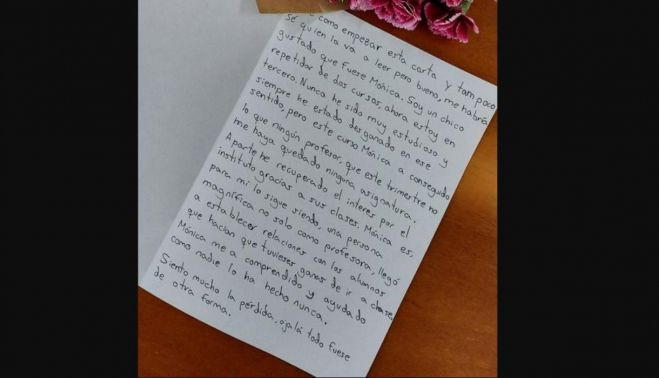 como empezar esta carta y tampoco
sé quien la va a leer pero bueno, me habría
gustado que fuese Mónica. Soy un chico
repetidor de dos cursos, ahora estoy en
tercero. Nunca he sido muy estudioso y
siempre he estado desganado en ese
sentido, pero este curso Mónica a conseguido
lo que ningún profesor, que este trimestre no
me haya quedado ninguna asignatura.
Aparte he recuperado el interes por el
instituto gracias a sus clases. Mónica es,
para mi lo sigue siendo, una persona
magnífica no solo como profesora, llegó
a establecer relaciones con los alumnos
que hacían que tuvieses ganas de ir a clase
Mónica me a comprendido y ayudado
como nadie lo ha hecho nunca.
Siento mucho la pérdida, ojalá todo fuese
de otra forma.